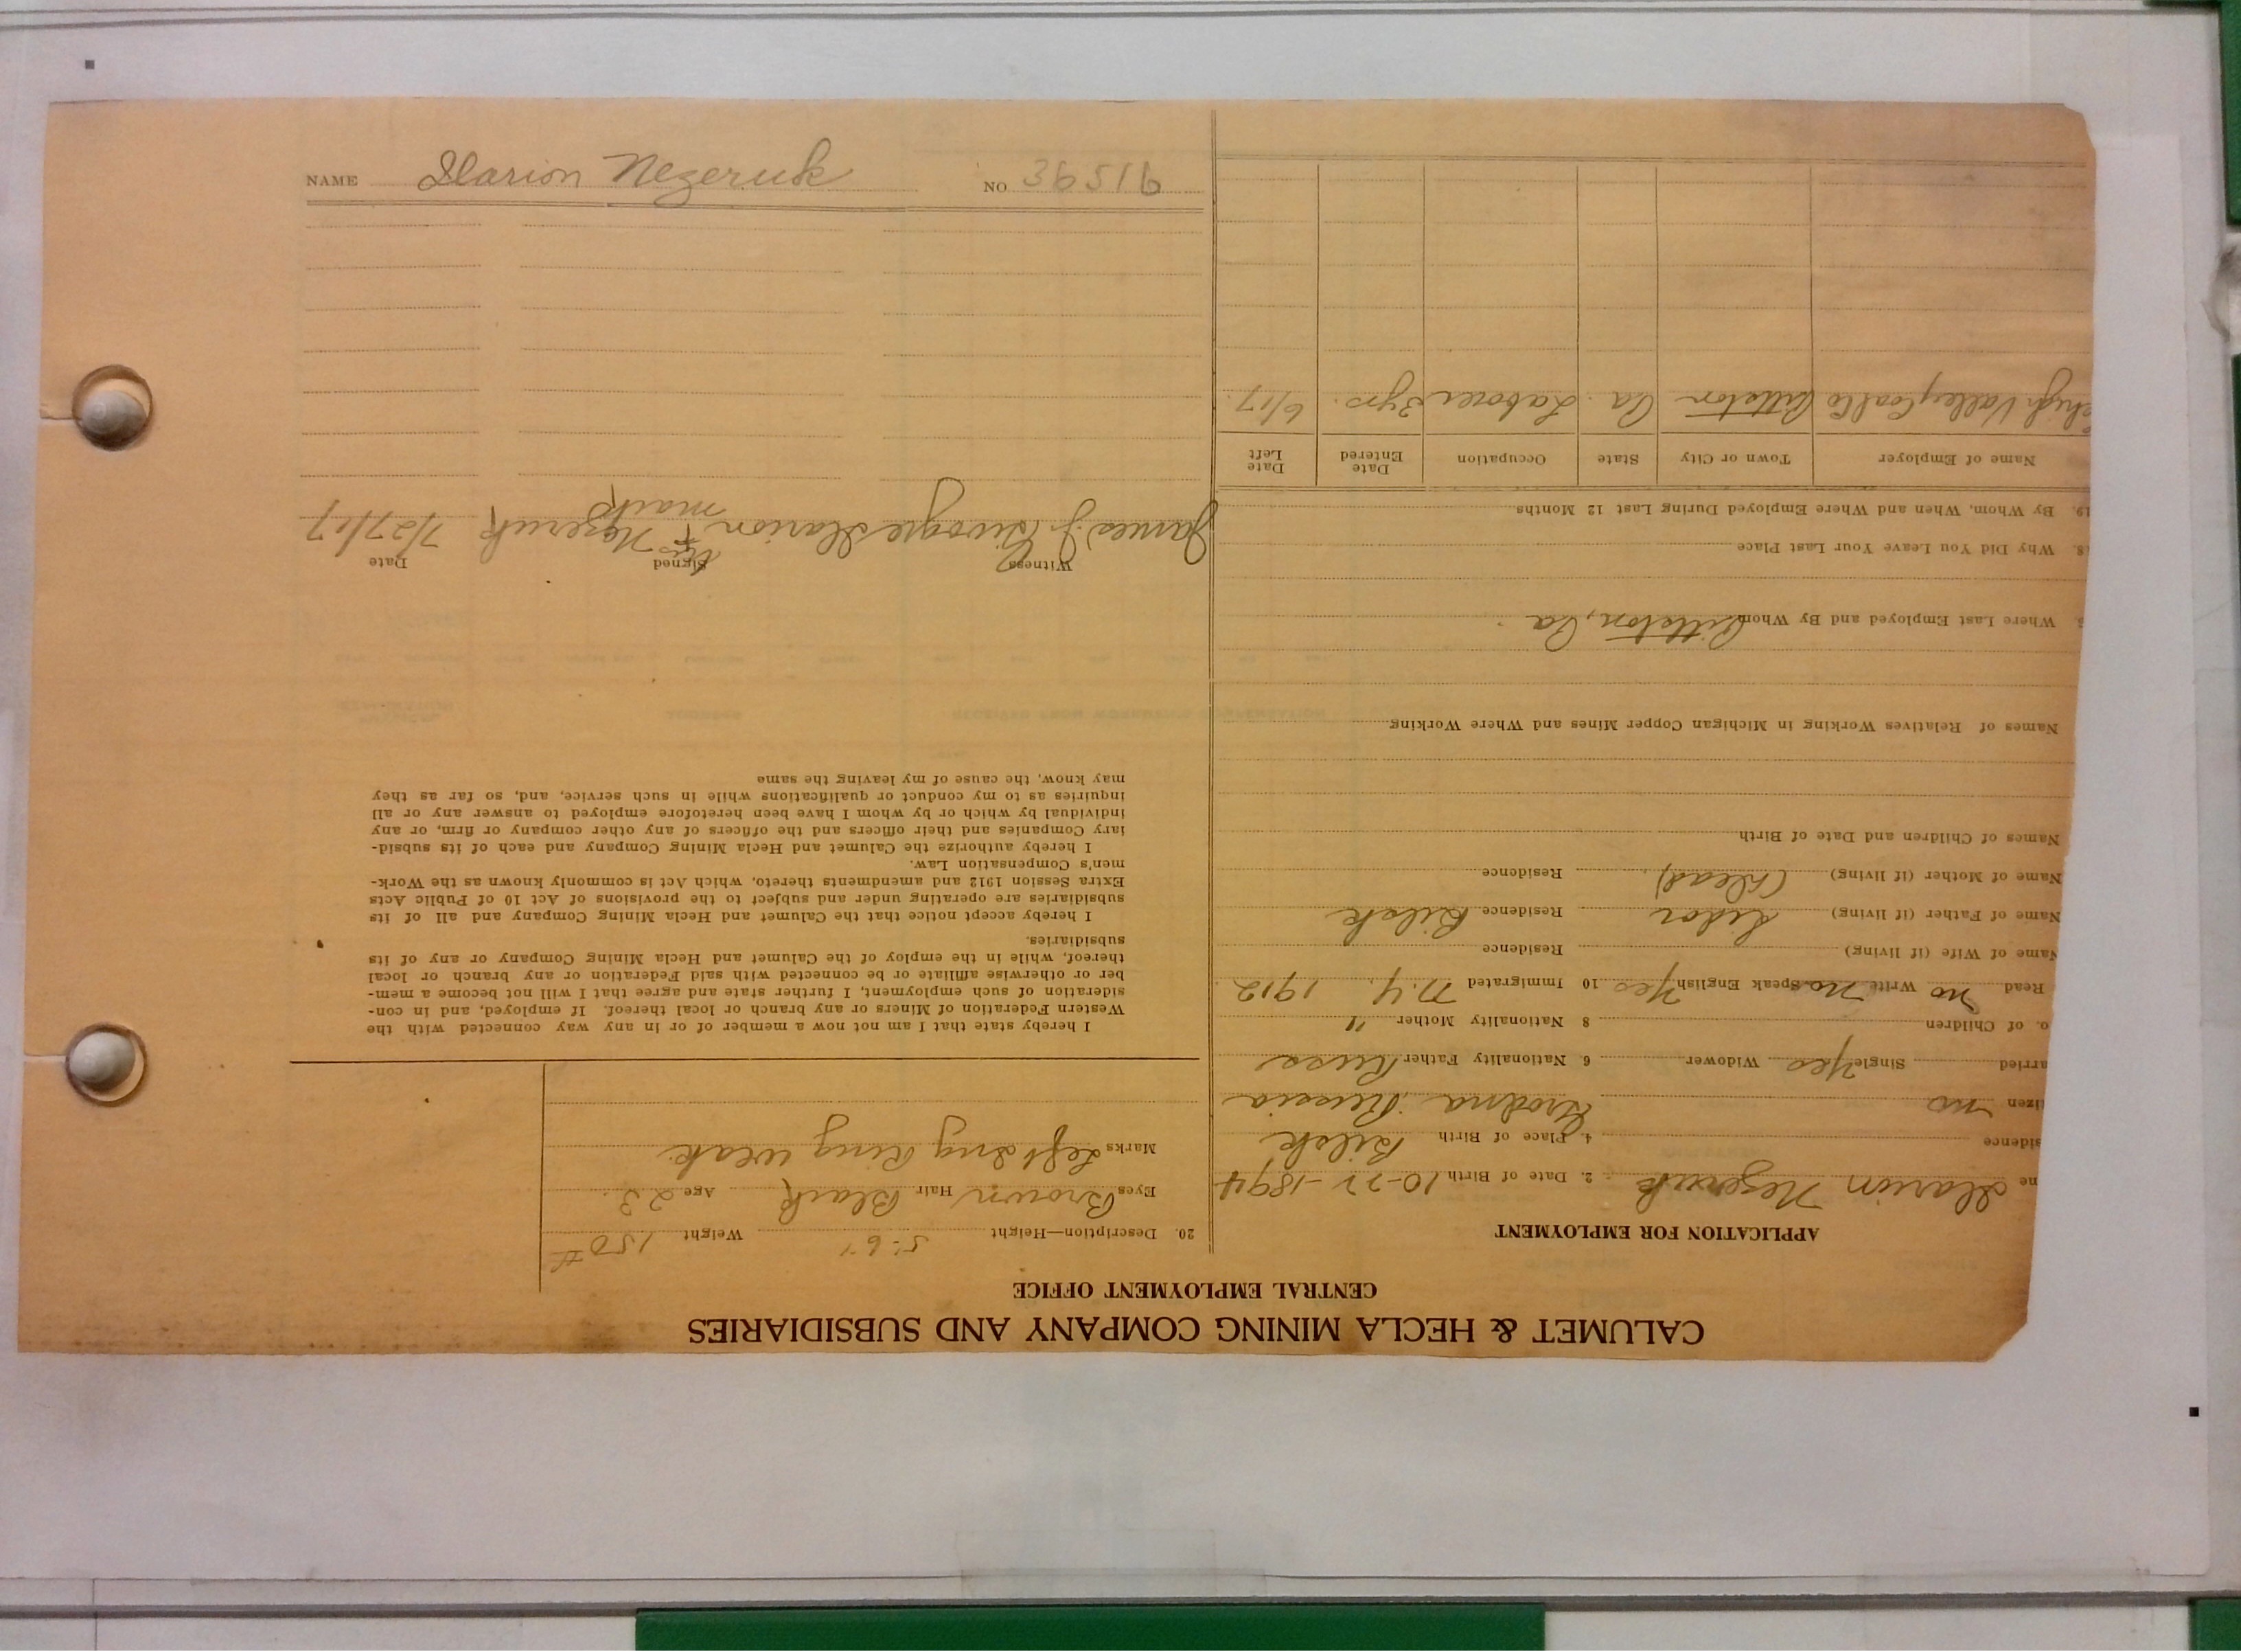 NAME Ilarion Nezeruk NO. 36516
CALUMET & HECLA MINING COMPANY AND SUBSIDIARIES
CENTRAL EMPLOYMENT OFFICE
APPLICATION FOR EMPLOYMENT
me Ilarion Nezeruk 2. Date of Birth 10-22-1894
sidence 4. Place of Birth Bilsk
izen no Grodna Russia
arried Single Yes Widower 6. Nationality Father Russ
o. of Children 8 Nationality Mother "
Read no Write no Speak English Yes 10 Immigrated N.Y. 1912
Name of Wife (if living) Residence
Name of Father (if living) Sidor Residence Bilsk
Name of Mother (if living) (Dead) Residence
Names of Children and Date of Birth
Names of Relatives Working in Michigan Copper Mines and Where Working
Where Last Employed and By Whom Pittston, Pa
8. Why Did You Leave Your Last Place
19. By Whom, When and Where Employed During Last 12 Months
Name of Employer Town or City State Occupation Date Entered Date Left
ehigh Valley Coal Co Pittston Pa. Laborer 3 yrs. 6/17
20. Description—Height 5'6" Weight 150#
Eyes Brown Hair Black Age 23
Marks Left Ring weak
I hereby state that I am not now a member of or in any way connected with the
Western Federation of Miners or any branch or local thereof. If employed, and in con-
sideration of such employment, I further state and agree that I will not become a mem-
ber or otherwise affiliate or be connected with said Federation or any branch or local
thereof, while in the employ of the Calumet and Hecla Mining Company or any of its
subsidiaries.
I hereby accept notice that the Calumet and Hecla Mining Company and all of its
subsidiaries are operating under and subject to the provisions of Act 10 of Public Acts
Extra Session 1912 and amendments thereto, which Act is commonly known as the Work-
men's Compensation Law.
I hereby authorize the Calumet and Hecla Mining Company and each of its subsid-
iary Companies and their officers and the officers of any other company or firm, or any
individual by which or by whom I have been heretofore employed to answer any or all
inquiries as to my conduct or qualifications while in such service, and, so far as they
may know, the cause of my leaving the same
Witness Signed Date
James J. Ilarion his + Nezeruk 7/27/17
mark